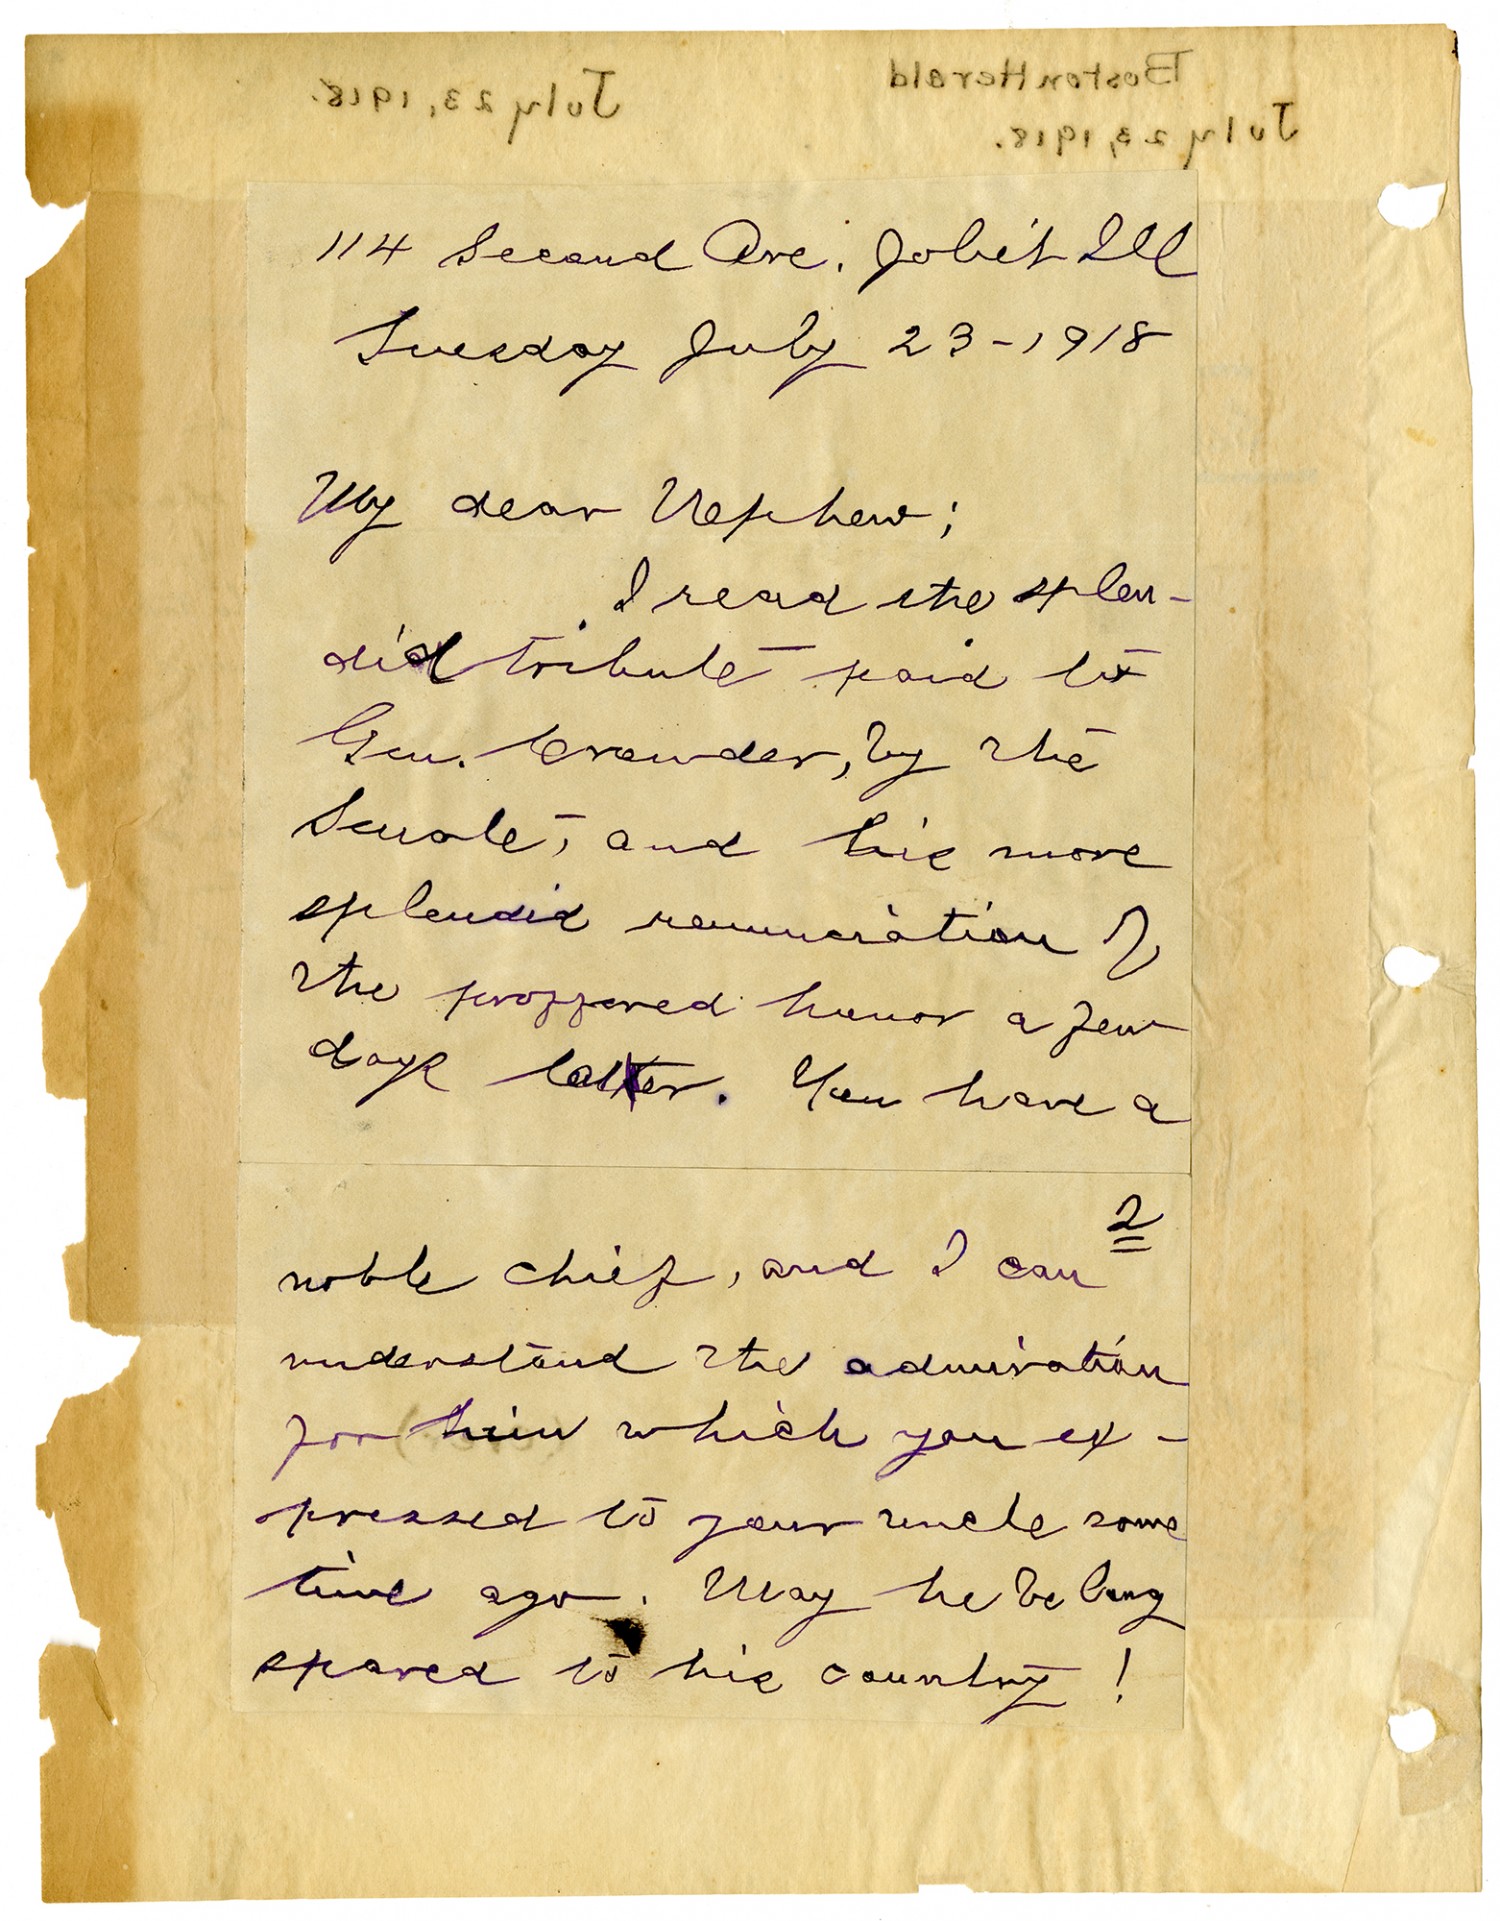 Boston Herald
July 23, 1918.
July 23, 1918.
114 Second Ave. Joliet Ill
Tuesday July 23-1918
My dear Nephew;
I read the splen-
did tribute paid to
Gen. Crowder, by the
Senate, and his more
splendid renunciation of
the proffered honor a few
days later. You have a
2
noble chief, and I can
understand the admiration
for him which you ex-
pressed to your uncle some
time ago. May he be long
spared to his country!